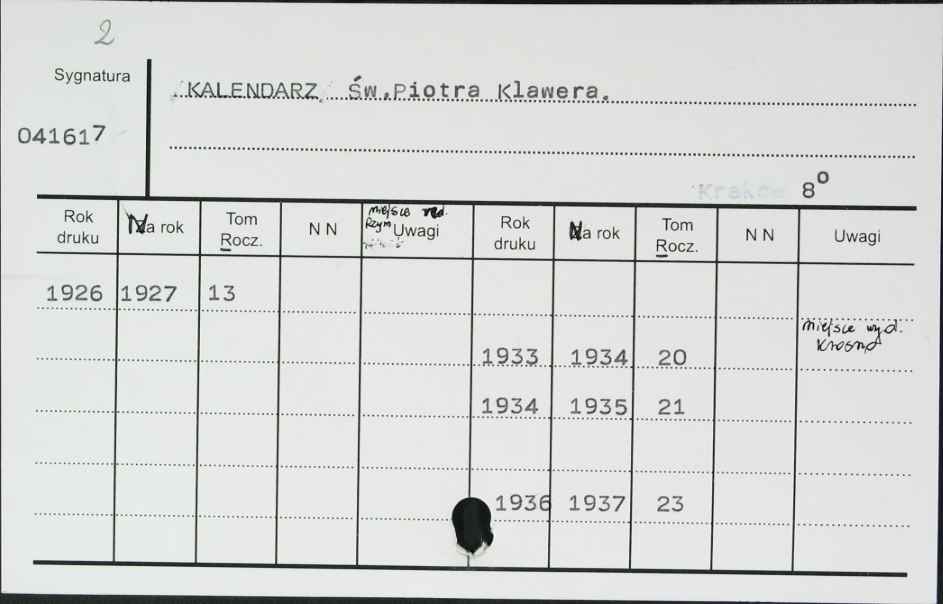 2
Sygnatura
KALENDARZ Św.Piotra Klawera.
041617
Kraków 8°
Rok druku Na rok Tom Rocz. N N miejsce red. Rzym Uwagi Rok druku Na rok Tom Rocz. N N Uwagi
1926 1927 13
miejsce wyd. Krosno
1933 1934 20
1934 1935 21
1936 1937 23